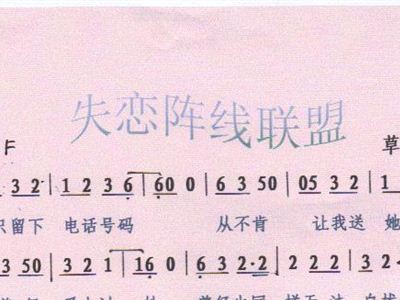 失恋阵线联盟
F 草
3 2 | 1 2 3 6 | 6 0 0 | 6 3 5 0 | 0 5 3 2 |
只留下 电话号码 从不肯 让我送 她
3 5 0 | 3 2 1 | 1 6 0 | 6 3 2·2 | 2 2 1